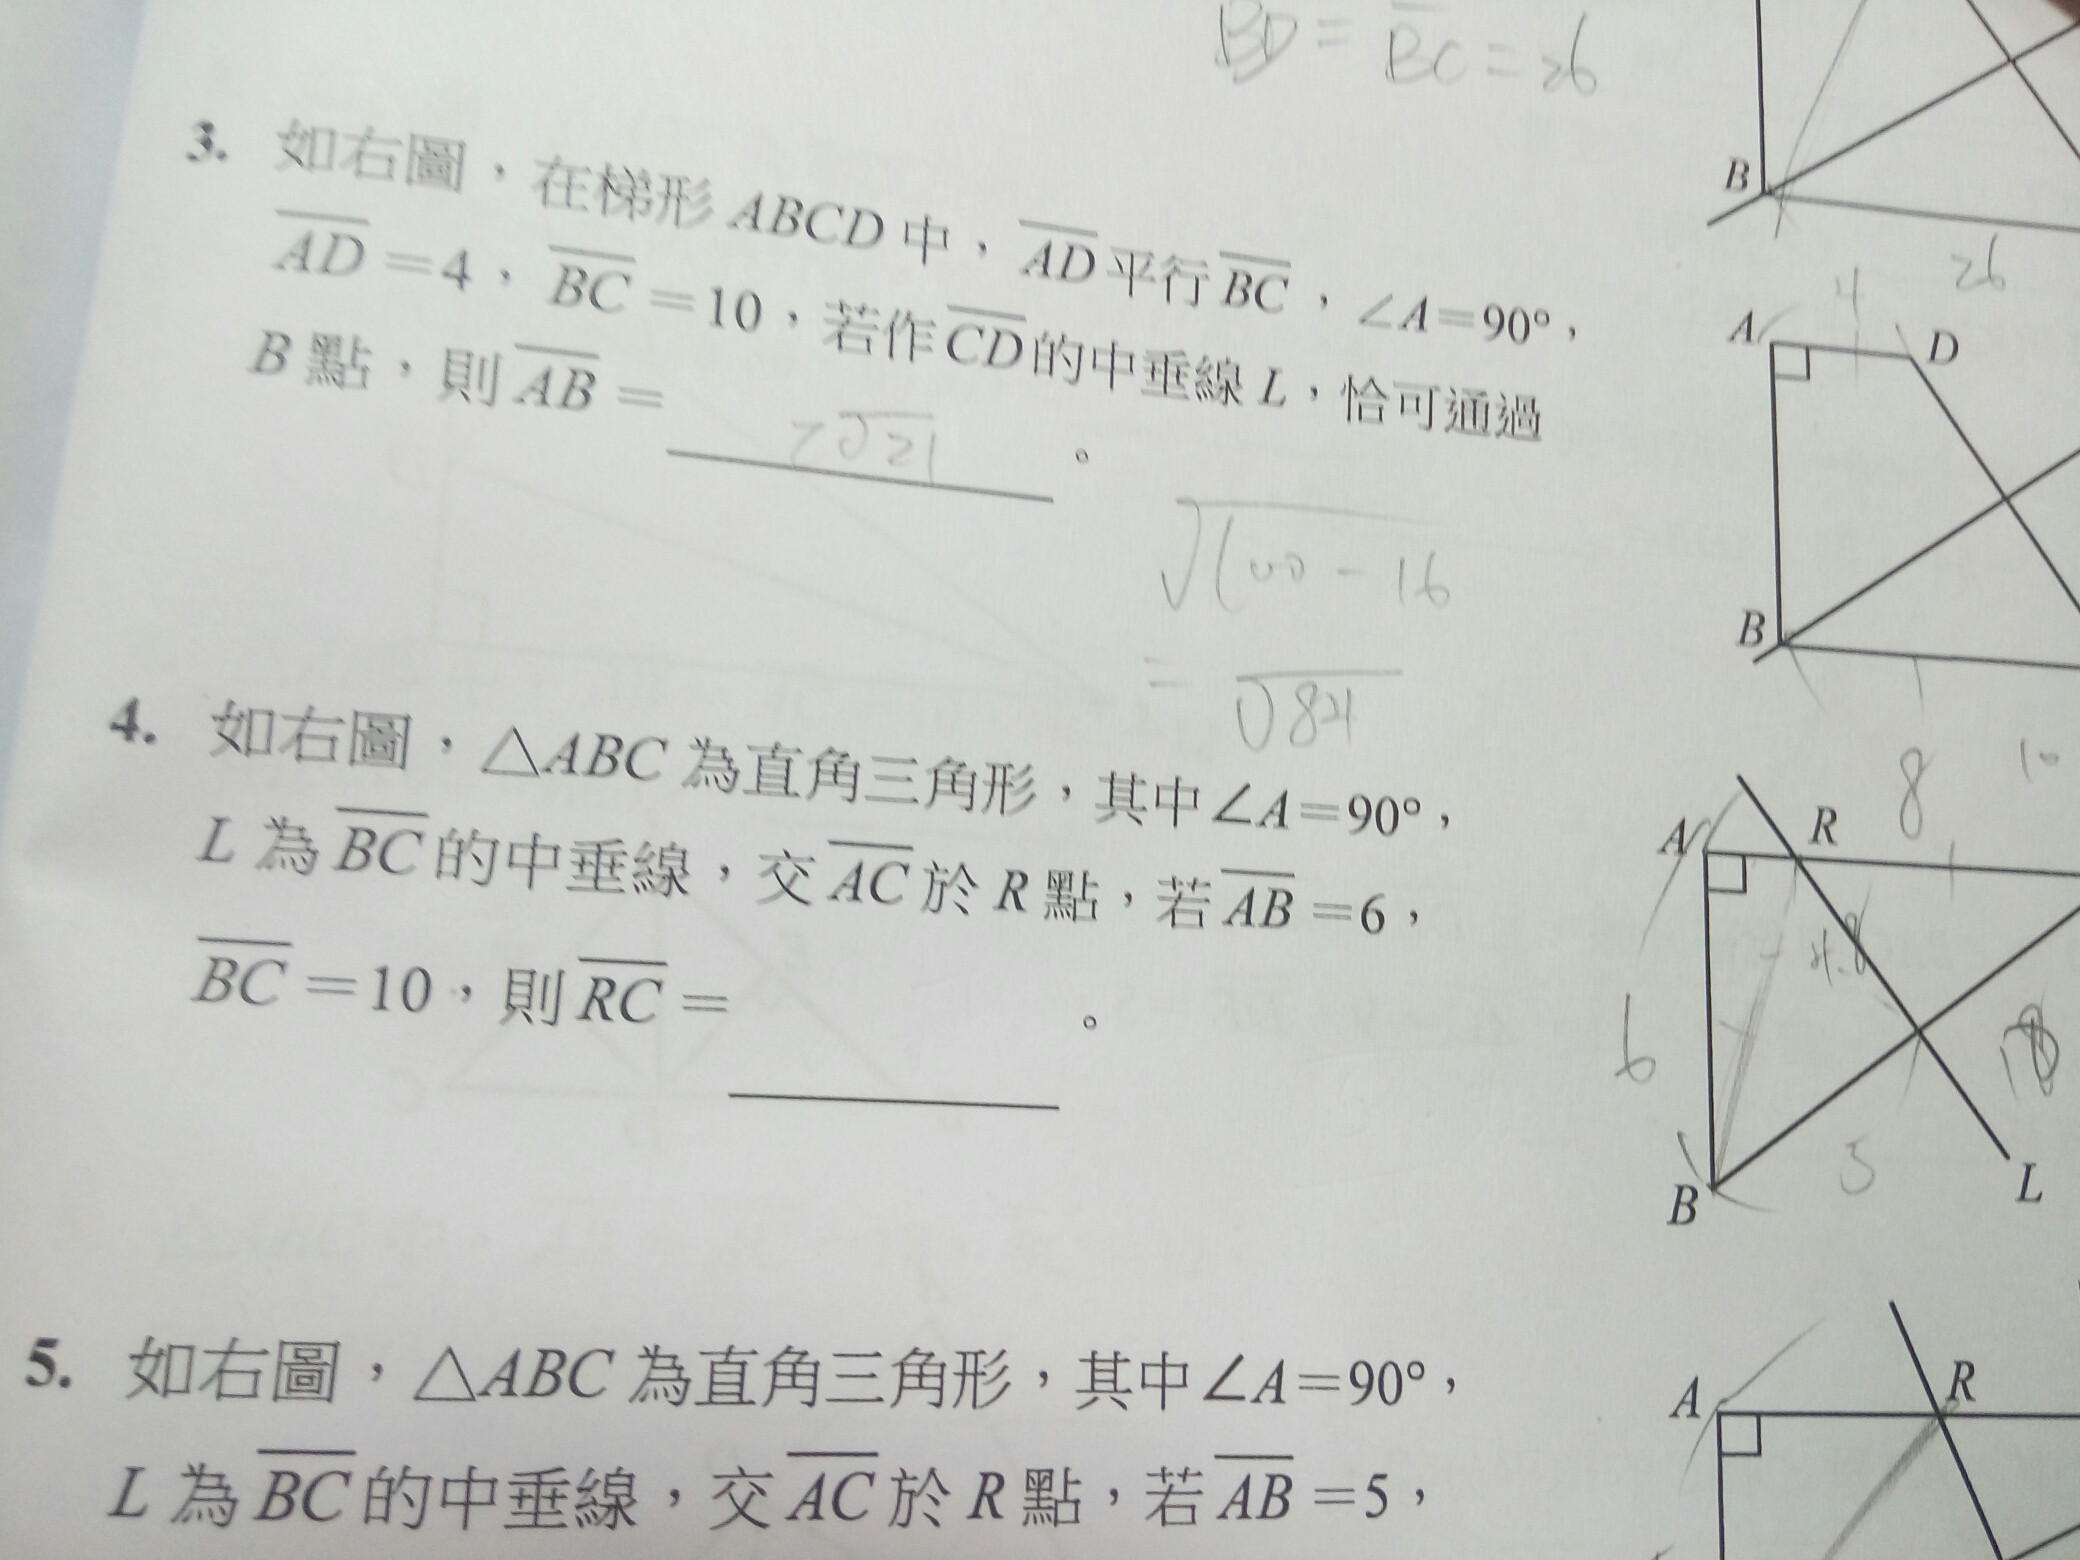 BD = BC = 26
3. 如右圖，在梯形 ABCD 中，AD 平行 BC，∠A=90°，
AD=4，BC=10，若作 CD 的中垂線 L，恰可通過
B 點，則 AB= 2√21 。
√100-16
= √84
4. 如右圖，△ABC 為直角三角形，其中∠A=90°，
L 為 BC 的中垂線，交 AC 於 R 點，若 AB=6，
BC=10，則 RC= 。
5. 如右圖，△ABC 為直角三角形，其中∠A=90°，
L 為 BC 的中垂線，交 AC 於 R 點，若 AB=5，
B
26
4
A
D
B
10
8
A
R
4.8
6
5
B
L
A
R